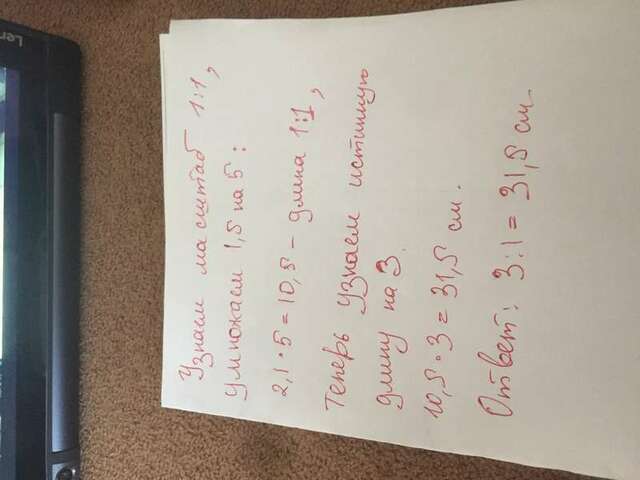 Leno
Узнаем масштаб 1:1,
умножаем 1,5 на 5:
2,1·5=10,5 – длина 1:1,
теперь узнаем истинную
длину на 3.
10,5·3=31,5 см.
Ответ: 3:1=31,5 см